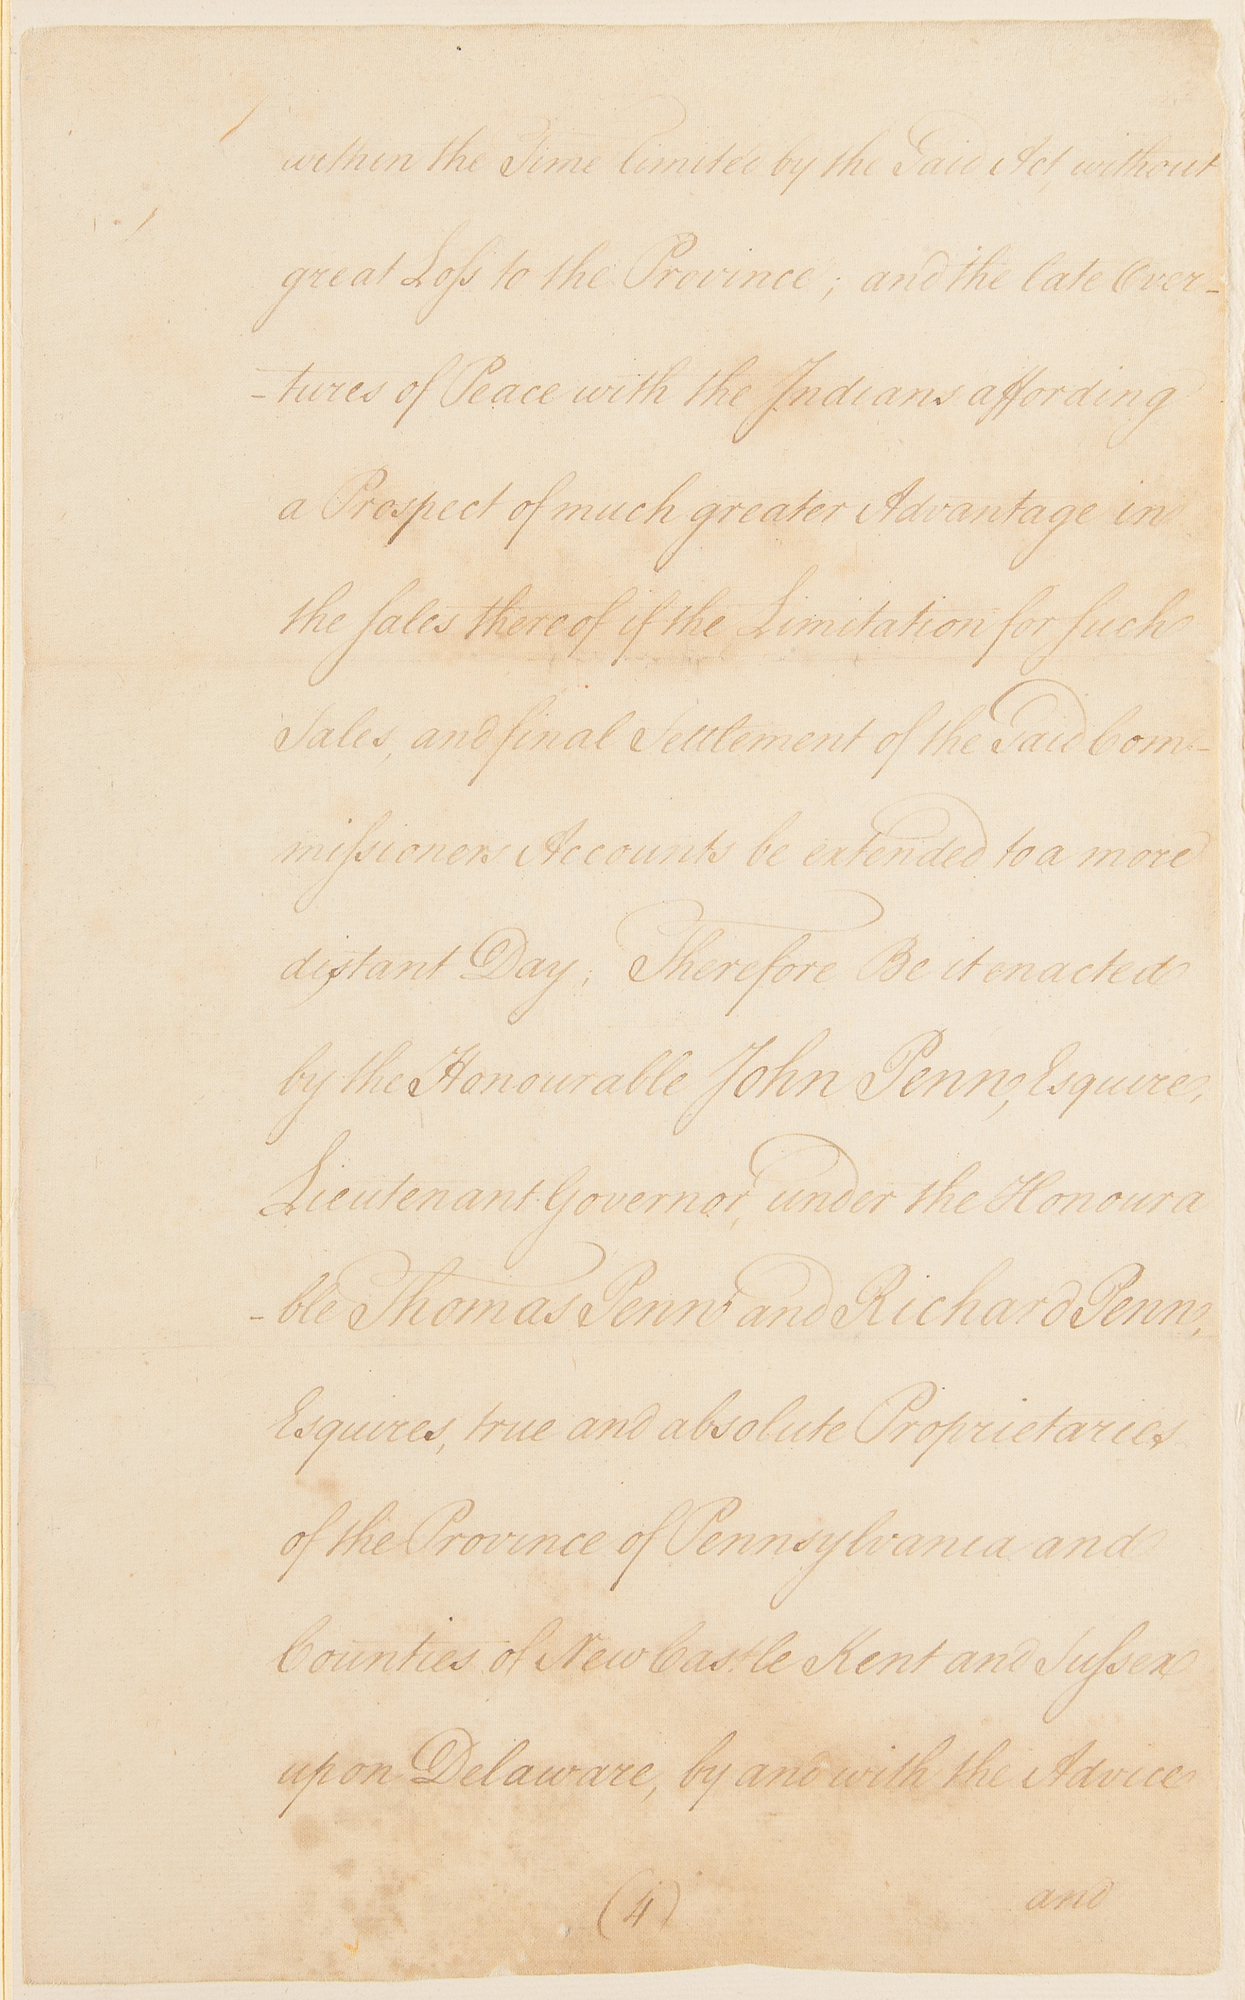 within the Time limited by the Said Act, without
great Loſs to the Province; and the late Over-
-tures of Peace with the Indians affording
a Prospect of much greater Advantage in
the ſales thereof if the Limitation for ſuch
Sales, and final Settlement of the Said Com-
miſsioners Accounts be extended to a more
distant Day; Therefore Be it enacted
by the Honourable John Penn, Esquire,
Lieutenant Governor, under the Honoura
-ble Thomas Penn, and Richard Penn,
Esquires, true and absolute Proprietaries
of the Province of Pennsylvania and
Counties of New Castle Kent and Suſsex
upon Delaware, by and with the Advice
(4) and